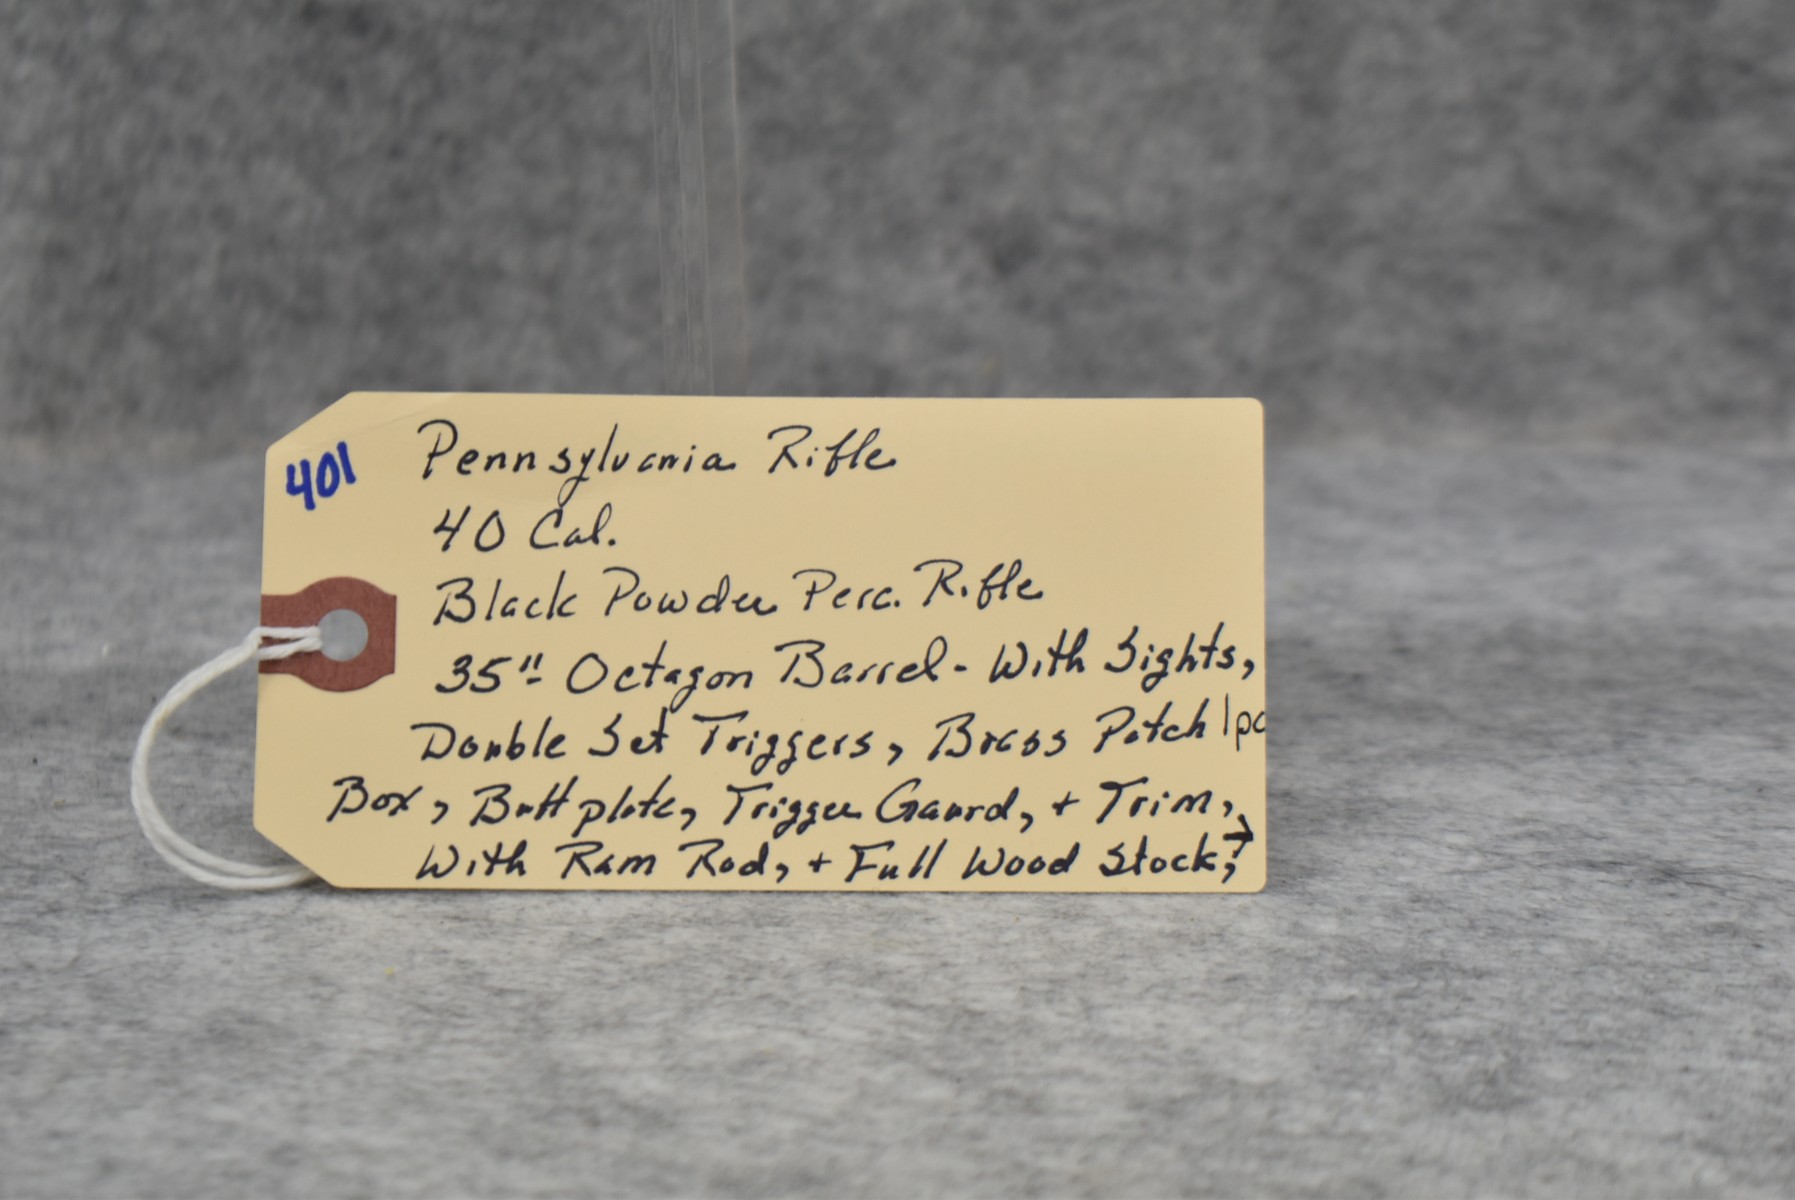 401
Pennsylvania Rifle
40 Cal.
Black Powder Perc. Rifle
35" Octagon Barrel - With Sights,
Double Set Triggers, Brass Patch 1pc
Box, Butt plate, Trigger Gaurd, + Trim,
With Ram Rod, + Full Wood Stock, →